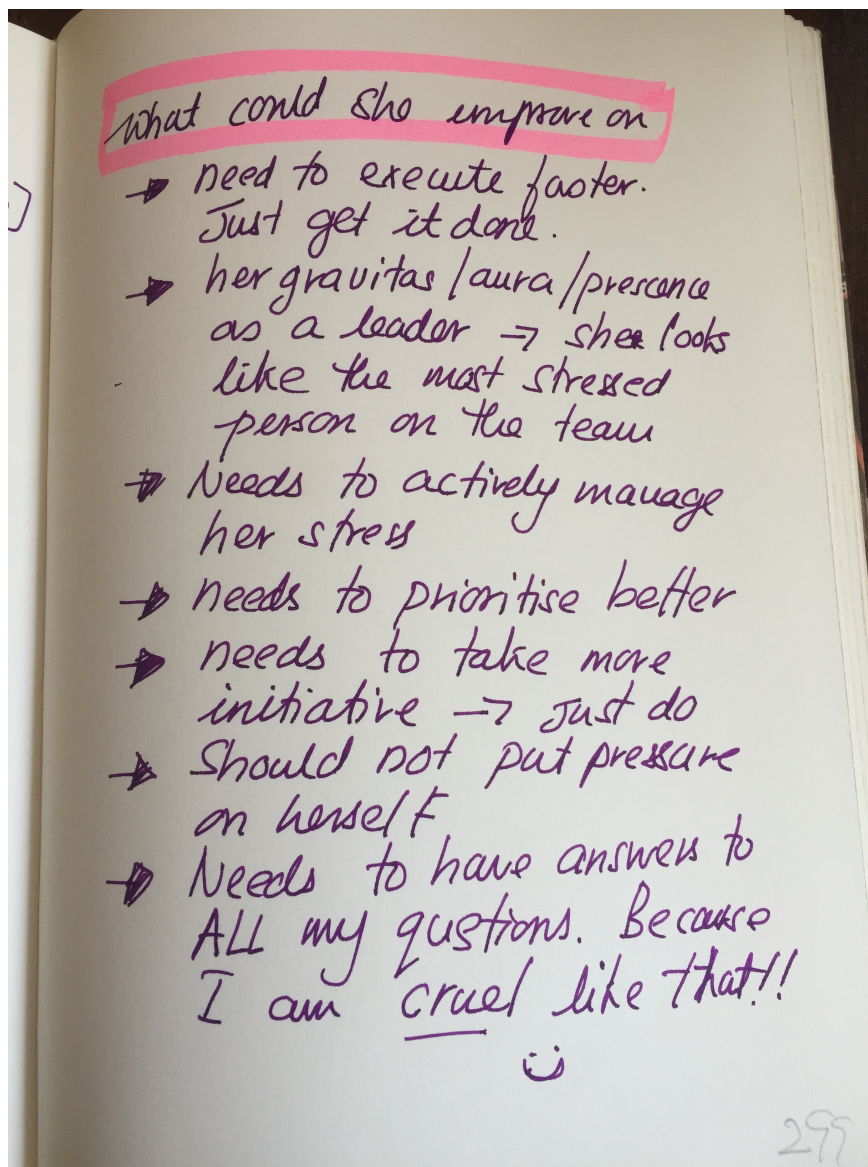 What could she improve on
→ need to execute faster.
Just get it done.
→ her gravitas/aura/prescence
as a leader → she looks
like the most stressed
person on the team
→ Needs to actively manage
her stress
→ needs to prioritise better
→ needs to take more
initiative → Just do
→ Should not put pressure
on herself
→ Needs to have answers to
ALL my qustions. Because
I am cruel like that!!
299